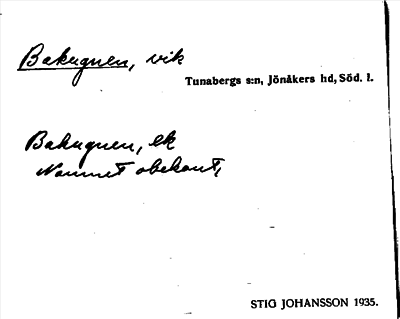 Bakugnen, vik
Tunabergs s:n, Jönåkers hd, Söd. l.
Bakugnen, ek
Namnet obekant,
STIG JOHANSSON 1935.